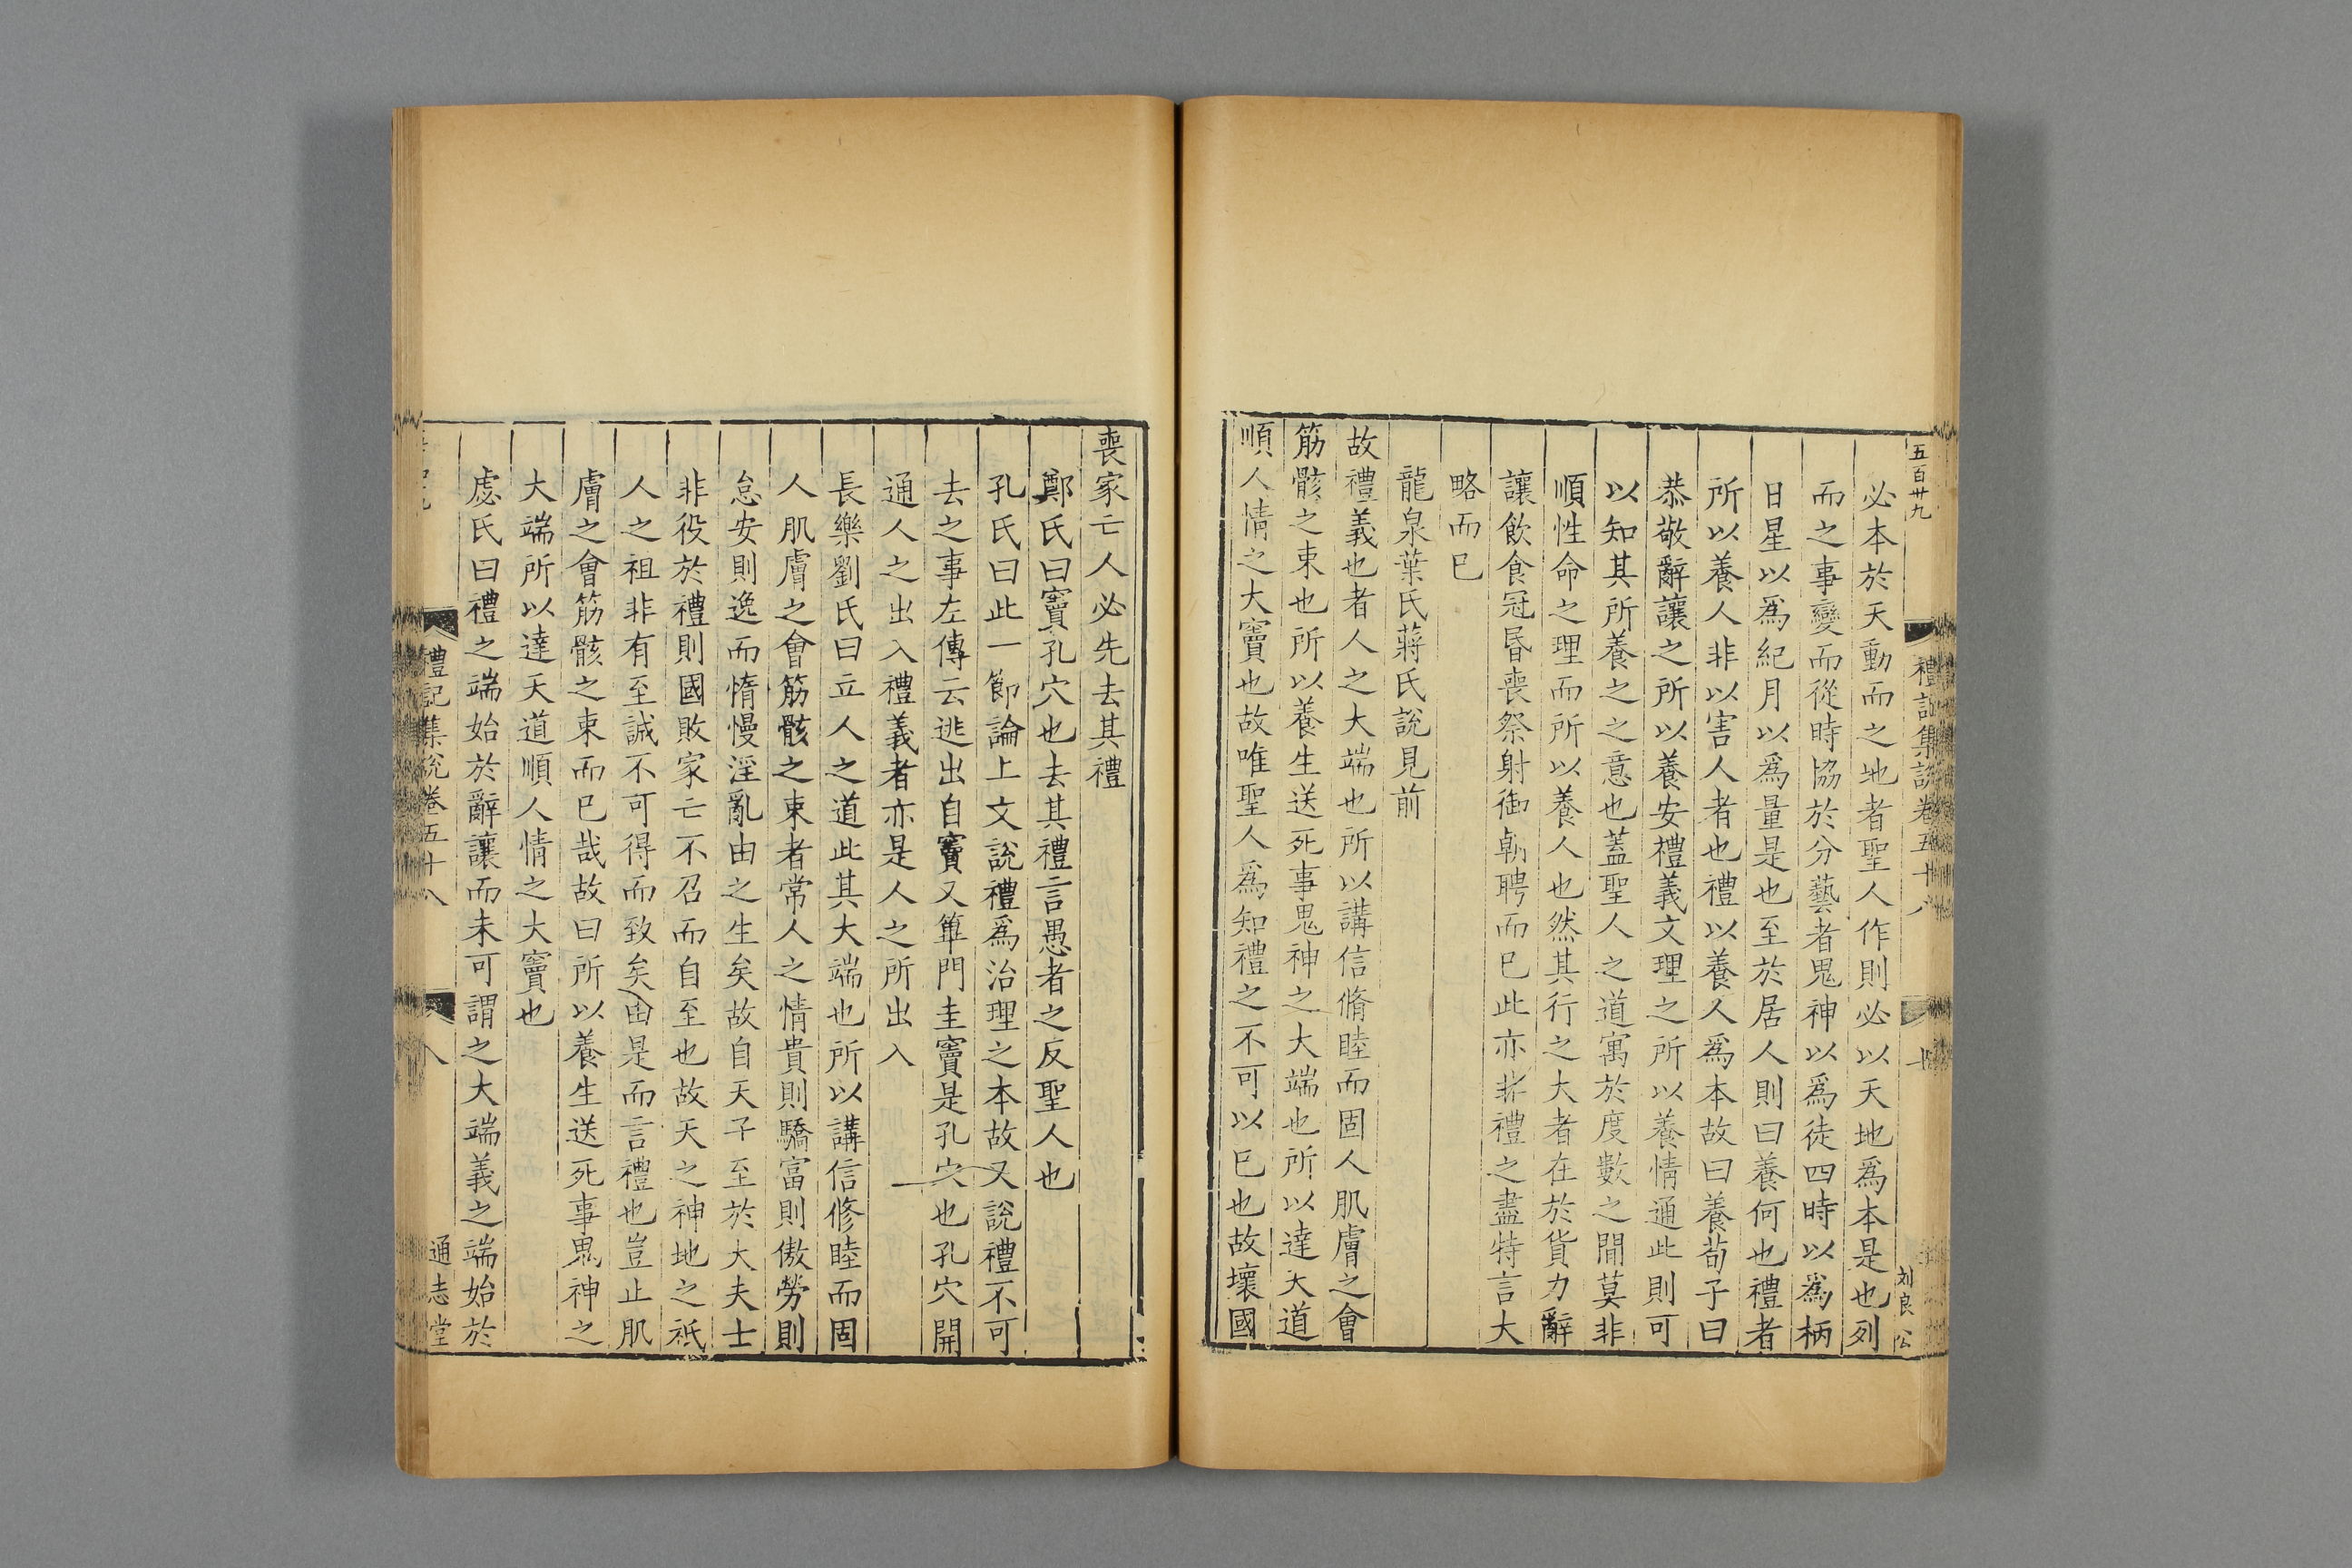 五百卅九
禮記集說卷五十八
刘良公
必本於天動而之地者聖人作則必以天地爲本是也列
而之事變而從時協於分藝者鬼神以爲徒四時以爲柄
日星以爲紀月以爲量是也至於居人則曰養何也禮者
所以養人非以害人者也禮以養人爲本故曰養荀子曰
恭敬辭讓之所以養安禮義文理之所以養情通此則可
以知其所養之之意也蓋聖人之道寓於度數之間莫非
順性命之理而所以養人也然其行之大者在於貨力辭
讓飲食冠昏喪祭射御朝聘而已此亦非禮之盡特言大
略而已
龍泉葉氏蔣氏說見前
故禮義也者人之大端也所以講信脩睦而固人肌膚之會
筋骸之束也所以養生送死事鬼神之大端也所以達天道
順人情之大竇也故唯聖人爲知禮之不可以已也故壞國
喪家亡人必先去其禮
鄭氏曰竇孔穴也去其禮言愚者之反聖人也
孔氏曰此一節論上文說禮爲治理之本故又說禮不可
去之事左傳云逃出自竇又篳門圭竇是孔穴也孔穴開
通人之出入禮義者亦是人之所出入
長樂劉氏曰立人之道此其大端也所以講信修睦而固
人肌膚之會筋骸之束者常人之情貴則驕富則傲勞則
怠安則逸而惰慢淫亂由之生矣故自天子至於大夫士
非役於禮則國敗家亡不召而自至也故天之神地之祇
人之祖非有至誠不可得而致矣由是而言禮也豈止肌
膚之會筋骸之束而已哉故曰所以養生送死事鬼神之
大端所以達天道順人情之大竇也
慮氏曰禮之端始於辭讓而未可謂之大端義之端始於
禮記集說卷五十八
八
通志堂